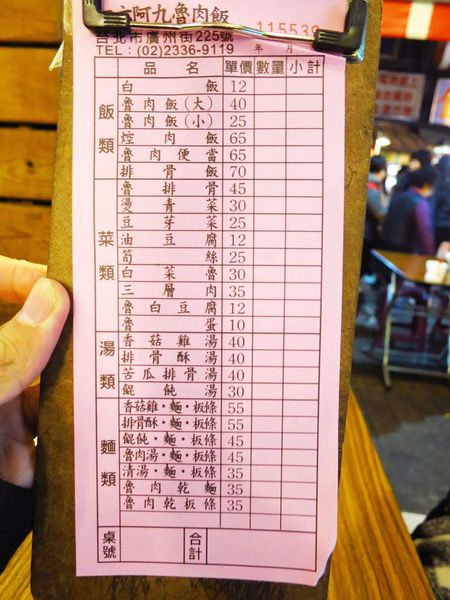 阿九魯肉飯
115539
台北市廣州街225號
TEL：(02)2336-9119 年 月
品名 單價 數量 小計
飯類
白飯 12
魯肉飯(大) 40
魯肉飯(小) 25
焢肉飯 65
魯肉便當 65
排骨飯 70
菜類
魯排骨 45
燙青菜 30
豆芽菜 25
油豆腐 12
筍絲 25
白菜魯 30
三層肉 35
魯白豆腐 12
魯蛋 10
湯類
香菇雞湯 40
排骨酥湯 40
苦瓜排骨湯 40
餛飩湯 30
麵類
香菇雞・麵・板條 55
排骨酥・麵・板條 55
餛飩・麵・板條 45
魯肉湯・麵・板條 45
清湯・麵・板條 35
魯肉乾麵 35
魯肉乾板條 35
桌號 合計